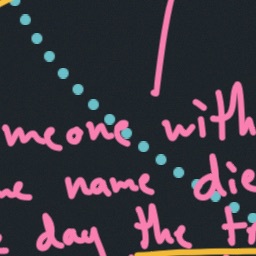 meone with
me name die
day the tr